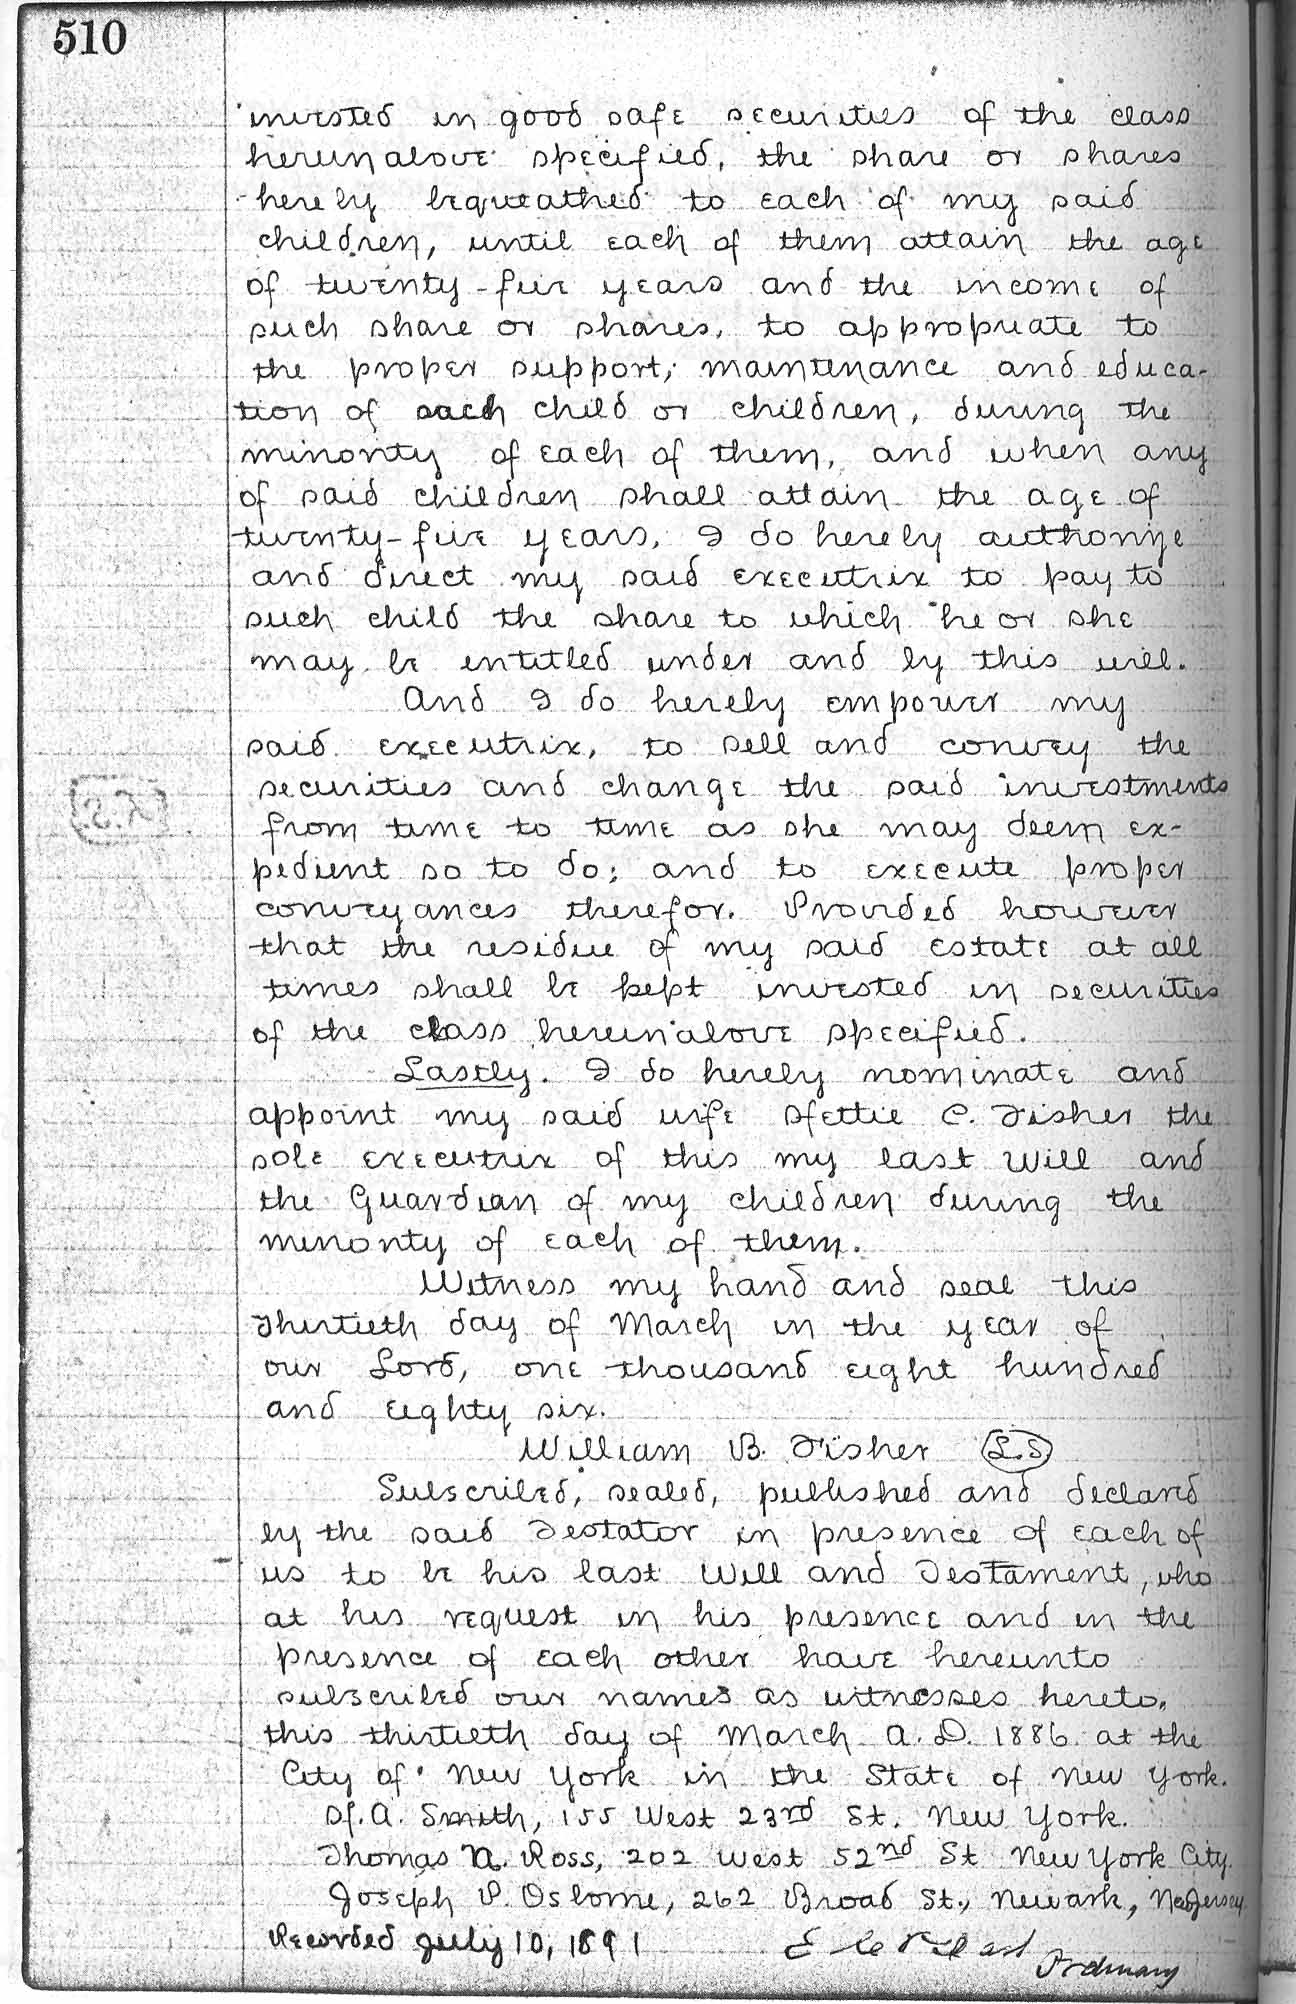 510
invested in good safe securities of the class
hereinabove specified, the share or shares
hereby bequeathed to each of my said
children, until each of them attain the age
of twenty-five years and the income of
such share or shares, to appropriate to
the proper support, maintenance and educa-
tion of each child or children, during the
minority of each of them, and when any
of said children shall attain the age of
twenty-five years, I do hereby authorize
and direct my said executrix to pay to
such child the share to which he or she
may be entitled under and by this will.
And I do hereby empower my
said executrix, to sell and convey the
securities and change the said investments
from time to time as she may deem ex-
pedient so to do; and to execute proper
conveyances therefor. Provided however
that the residue of my said estate at all
times shall be kept invested in securities
of the class hereinabove specified.
Lastly. I do hereby nominate and
appoint my said wife Hettie C. Fisher the
sole executrix of this my last Will and
the Guardian of my children during the
minority of each of them.
Witness my hand and seal this
Thirtieth day of March in the year of
our Lord, one thousand eight hundred
and eighty six.
William B. Fisher L.S
Subscribed, sealed, published and declared
by the said Testator in presence of each of
us to be his last Will and Testament, who
at his request in his presence and in the
presence of each other have hereunto
subscribed our names as witnesses hereto,
this thirtieth day of March A.D. 1886 at the
City of New York in the State of New York.
H. A. Smith, 155 West 23rd St. New York.
Thomas N. Ross, 202 West 52nd St New York City.
Joseph P. Osborne, 262 Broad St., Newark, New Jersey
Recorded July 10, 1891
Ordinary